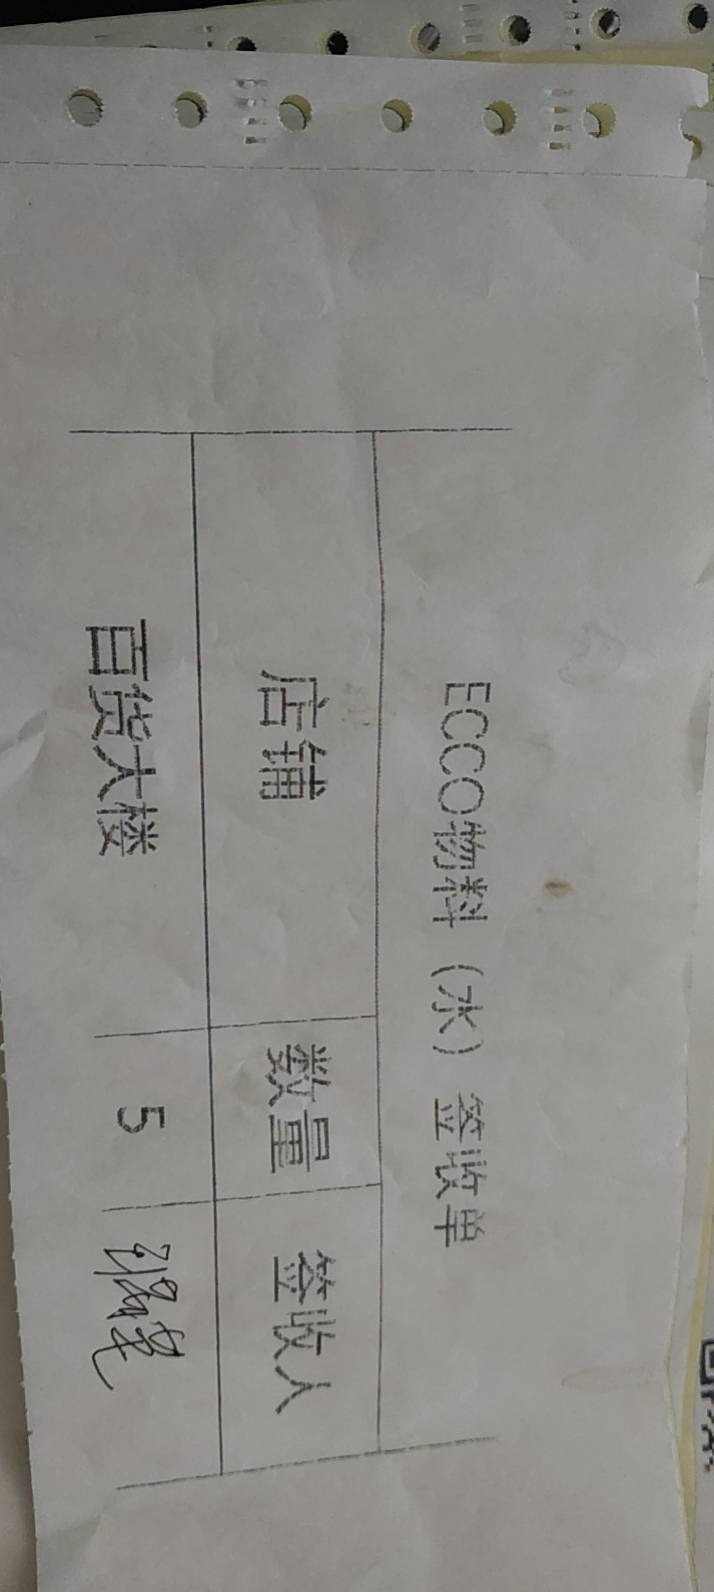 ECCO物料（水）签收单
店铺 数量 签收人
百货大楼 5